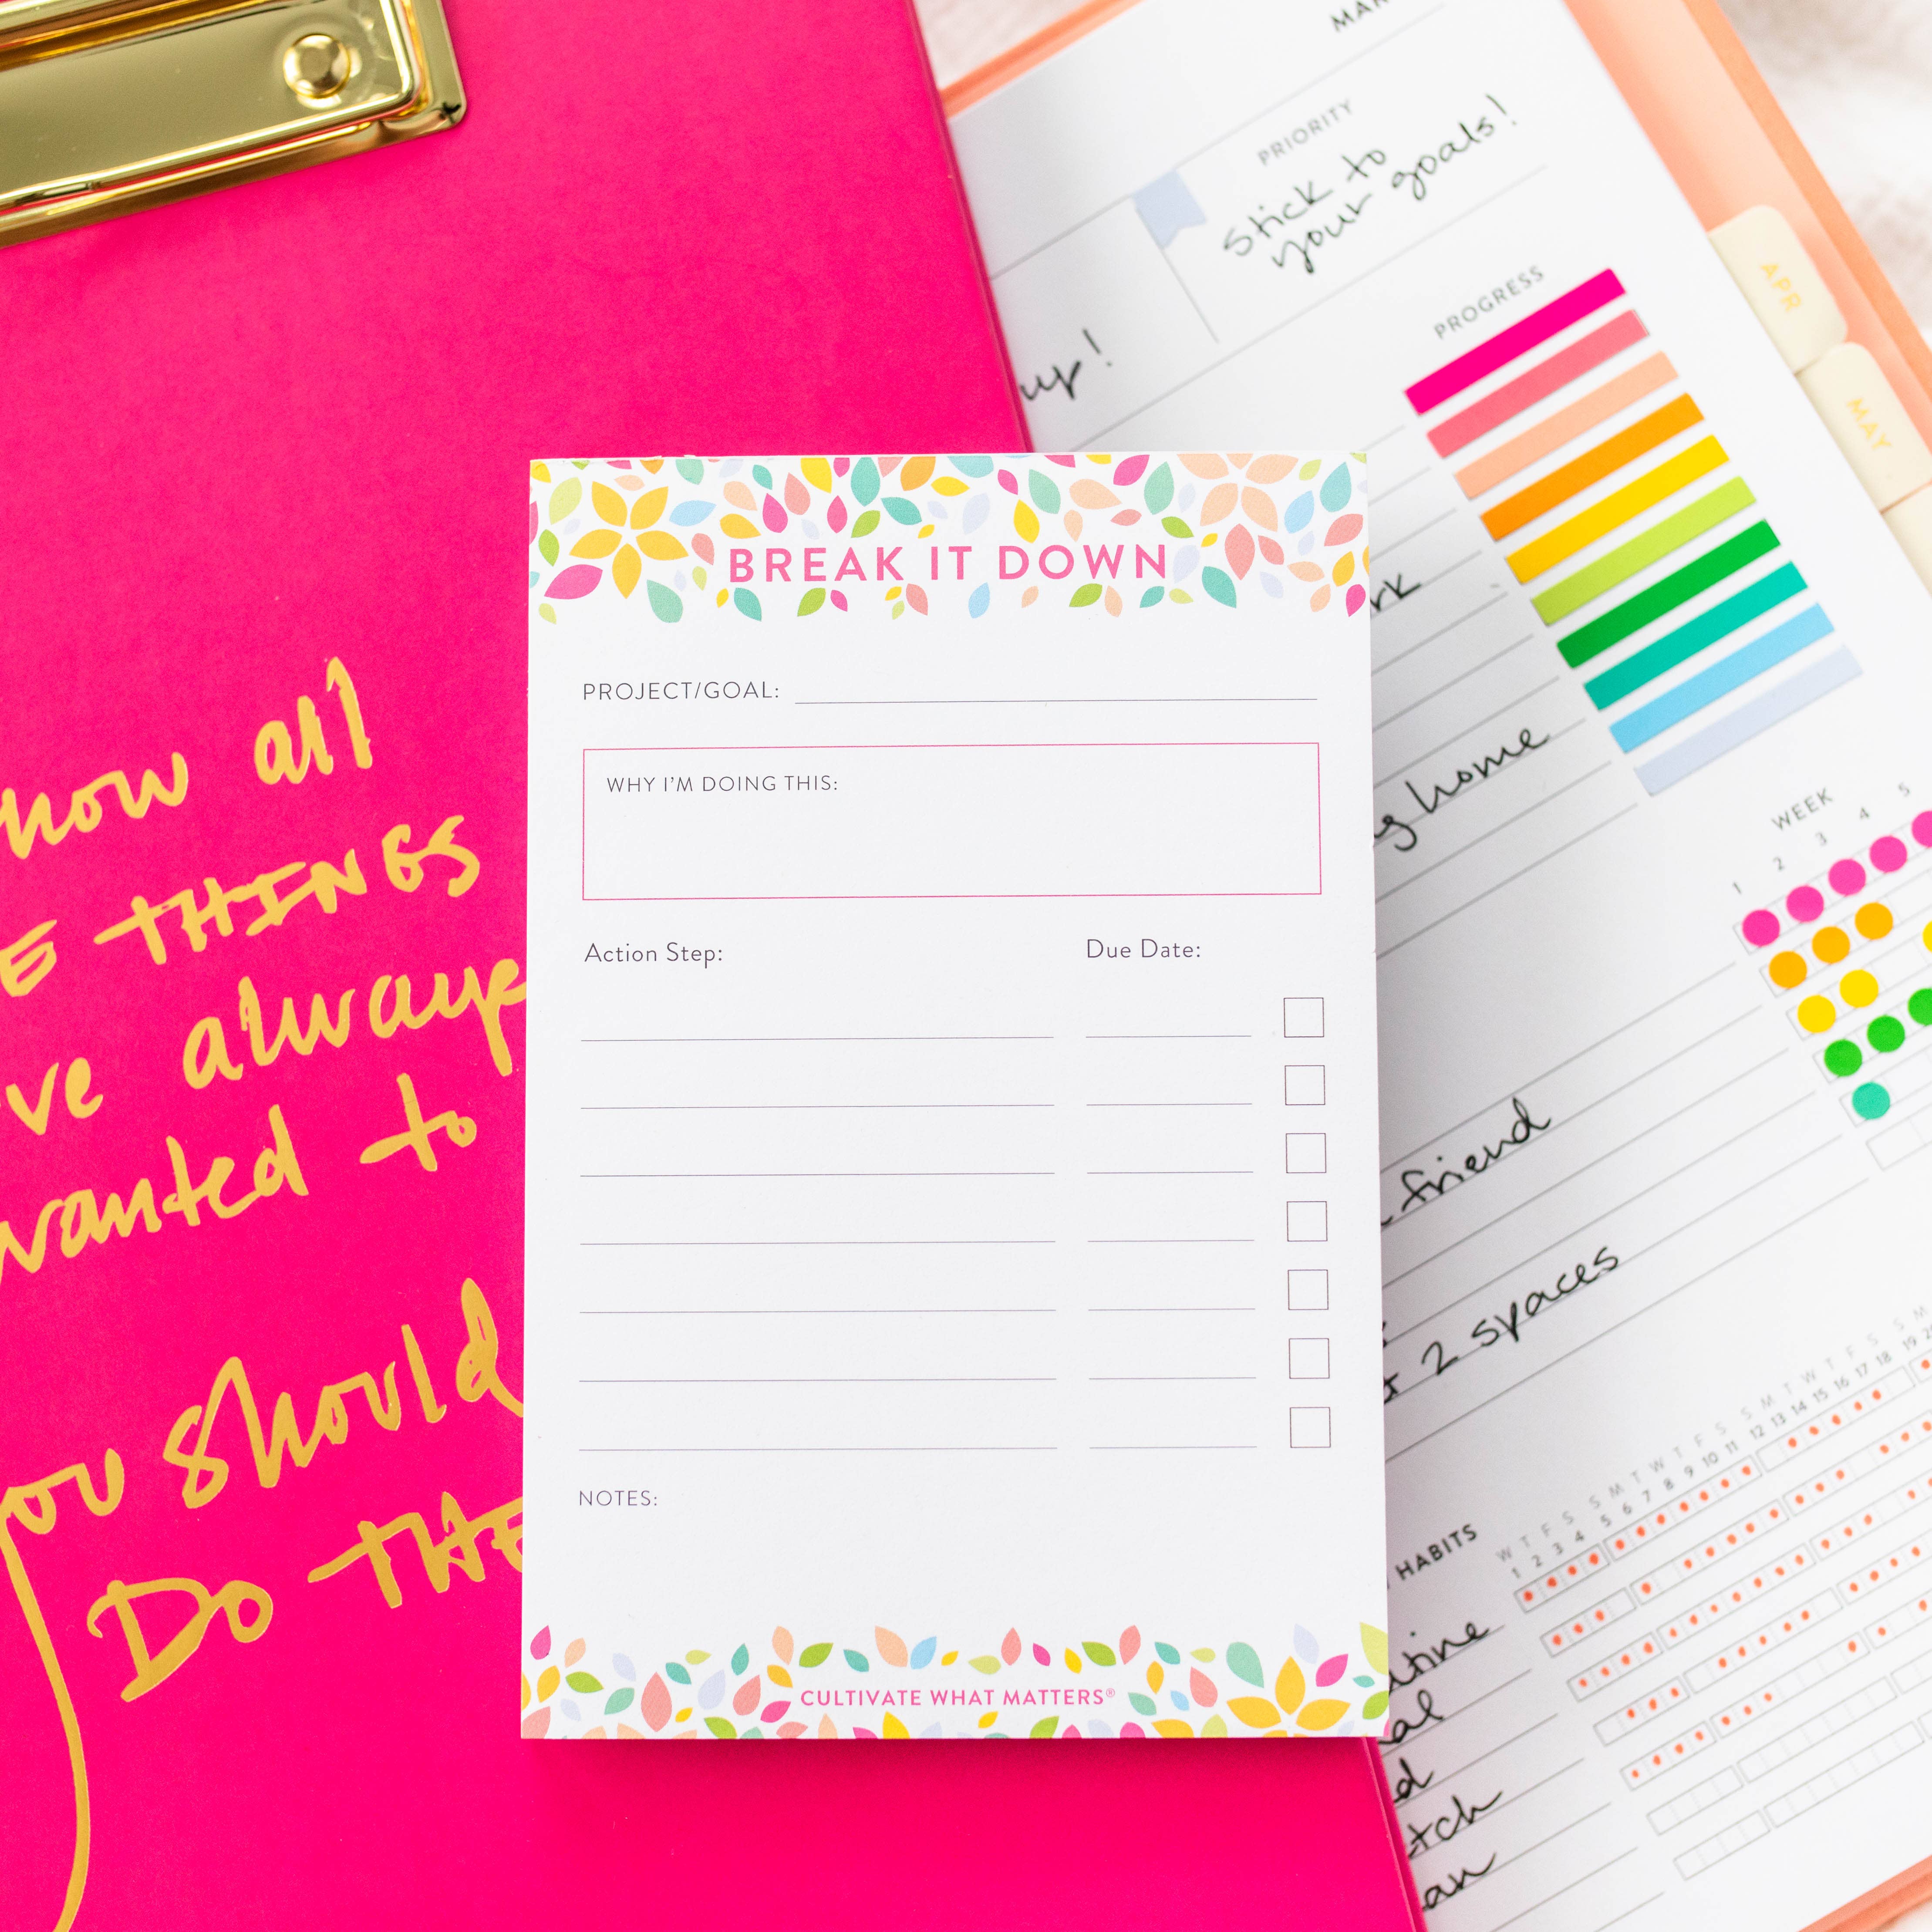 how all
THINGS
ve always
wanted to
you should
DO THE
BREAK IT DOWN
PROJECT/GOAL:
WHY I'M DOING THIS:
Action Step: Due Date:
NOTES:
CULTIVATE WHAT MATTERS®
MAR
PRIORITY
Stick to
your goals!
up!
PROGRESS
home
WEEK
1 2 3 4 5
friend
2 spaces
HABITS
W T F S S M T W T F S S M T W T F S S M
1 2 3 4 5 6 7 8 9 10 11 12 13 14 15 16 17 18 19
APR
MAY